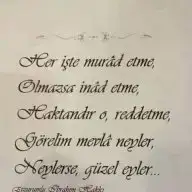 Her işte murâd etme,
Olmazsa inâd etme,
Haktandır o, reddetme,
Görelim mevlâ neyler,
Neylerse, güzel eyler...
Erzurumlu İbrahim Hakkı